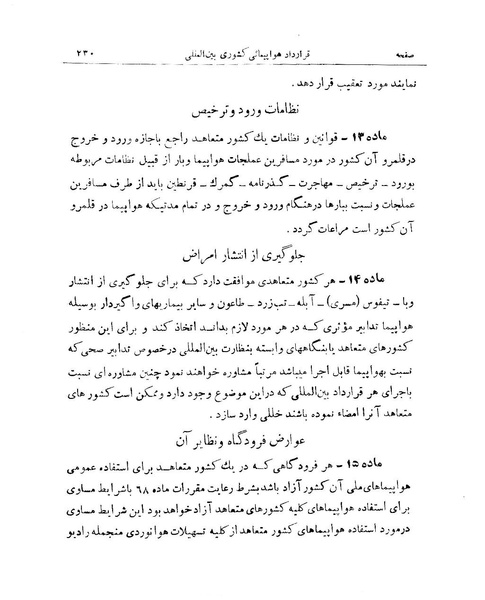 صفحه قرارداد هواپیمائی کشوری بین‌المللی ۲۳۰
نمایند مورد تعقیب قرار دهد.
نظامات ورود و ترخیص
ماده ۱۳ - قوانین و نظامات یك کشور متعاهد راجع باجازه ورود و خروج
درقلمرو آن کشور در مورد مسافرین عملجات هواپیما وبار از قبیل نظامات مربوطه
بورود - ترخیص - مهاجرت - گذرنامه - گمرك - قرنطین باید از طرف مسافرین
عملجات ونسبت ببارها درهنگام ورود و خروج و در تمام مدتیکه هواپیما در قلمرو
آن کشور است مراعات گردد.
جلوگیری از انتشار امراض
ماده ۱۴ - هر کشور متعاهدی موافقت دارد که برای جلوگیری از انتشار
وبا - تیفوس (مسری) - آبله - تب‌زرد - طاعون و سایر بیماریهای واگیردار بوسیله
هواپیما تدابیر مؤثری که در هر مورد لازم بداند اتخاذ کند و برای این منظور
کشورهای متعاهد یابنگاههای وابسته بنظارت بین‌المللی درخصوص تدابیر صحی که
نسبت بهواپیما قابل اجرا میباشد مرتباً مشاوره خواهند نمود چنین مشاوره‌ای نسبت
باجرای هر قرارداد بین‌المللی که دراین موضوع وجود دارد وممکن است کشورهای
متعاهد آنرا امضاء نموده باشند خللی وارد سازد.
عوارض فرودگاه ونظایر آن
ماده ۱۵ - هر فرودگاهی که در یك کشور متعاهد برای استفاده عمومی
هواپیماهای‌ملی آن کشور آزاد باشدبشرط رعایت مقررات ماده ۶۸ باشرایط مساری
برای استفاده هواپیماهای کلیه کشورهای متعاهد آزادخواهد بود این شرایط مساری
درمورد استفاده هواپیماهای کشور متعاهد از کلیه تسهیلات هوانوردی منجمله رادیو